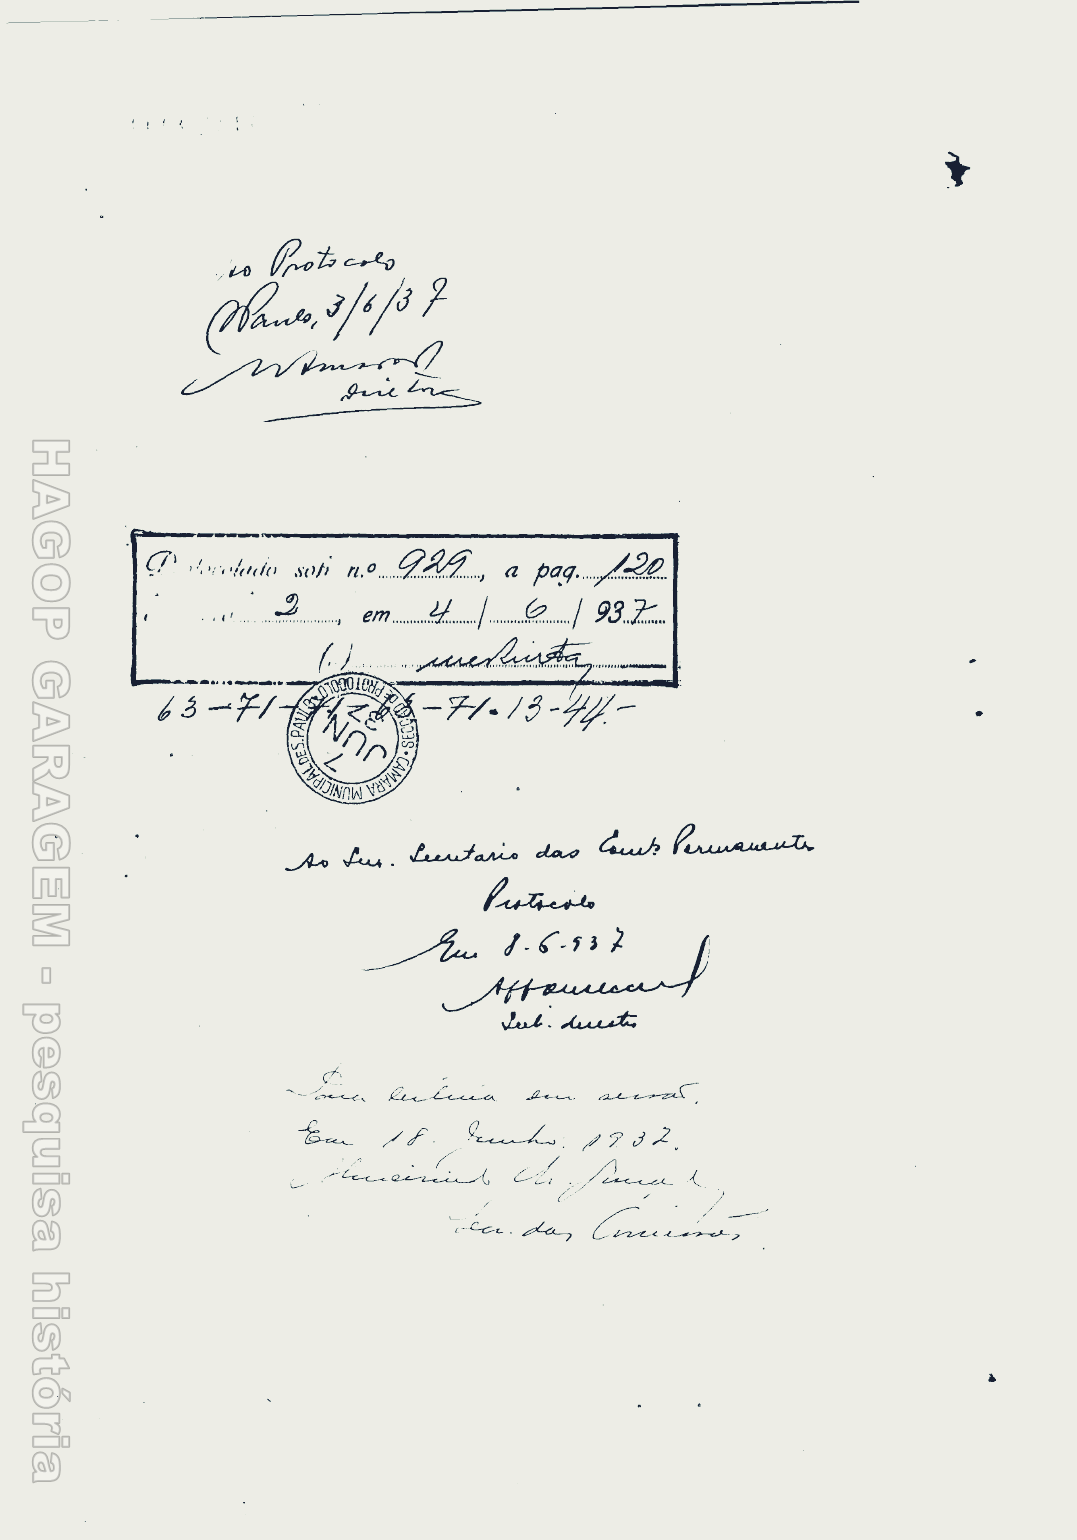 Ao Protocolo
S Paulo, 3/6/37
Diretor
Protocolado sob n.o 929, a pag. 120
2, em 4 / 6 / 937
(.)
63-71-71-Z-63-71.13-44.-
SECÇÃO DE PROTOCOLO • CAMARA MUNICIPAL DE S. PAULO
7 JUN 37
Ao Snr. Secretario das Com.s Permanentes
Protocolo
Em 8-6-937
Sub. director
Para leitura em sessão.
Em 18. Junho. 1937.
Sec. das Comissões
HAGOP GARAGEM - pesquisa história